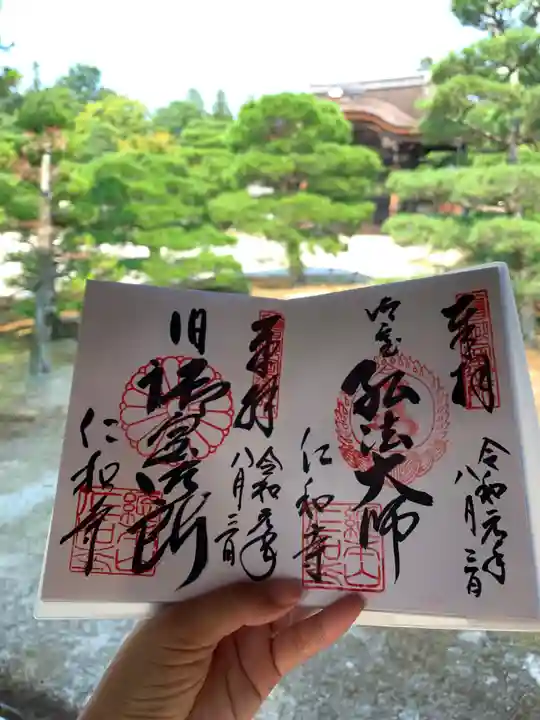 奉拝
令和元年
八月三日
弘法大師
仁和寺
奉拝
令和元年
八月三日
旧御室御所
仁和寺